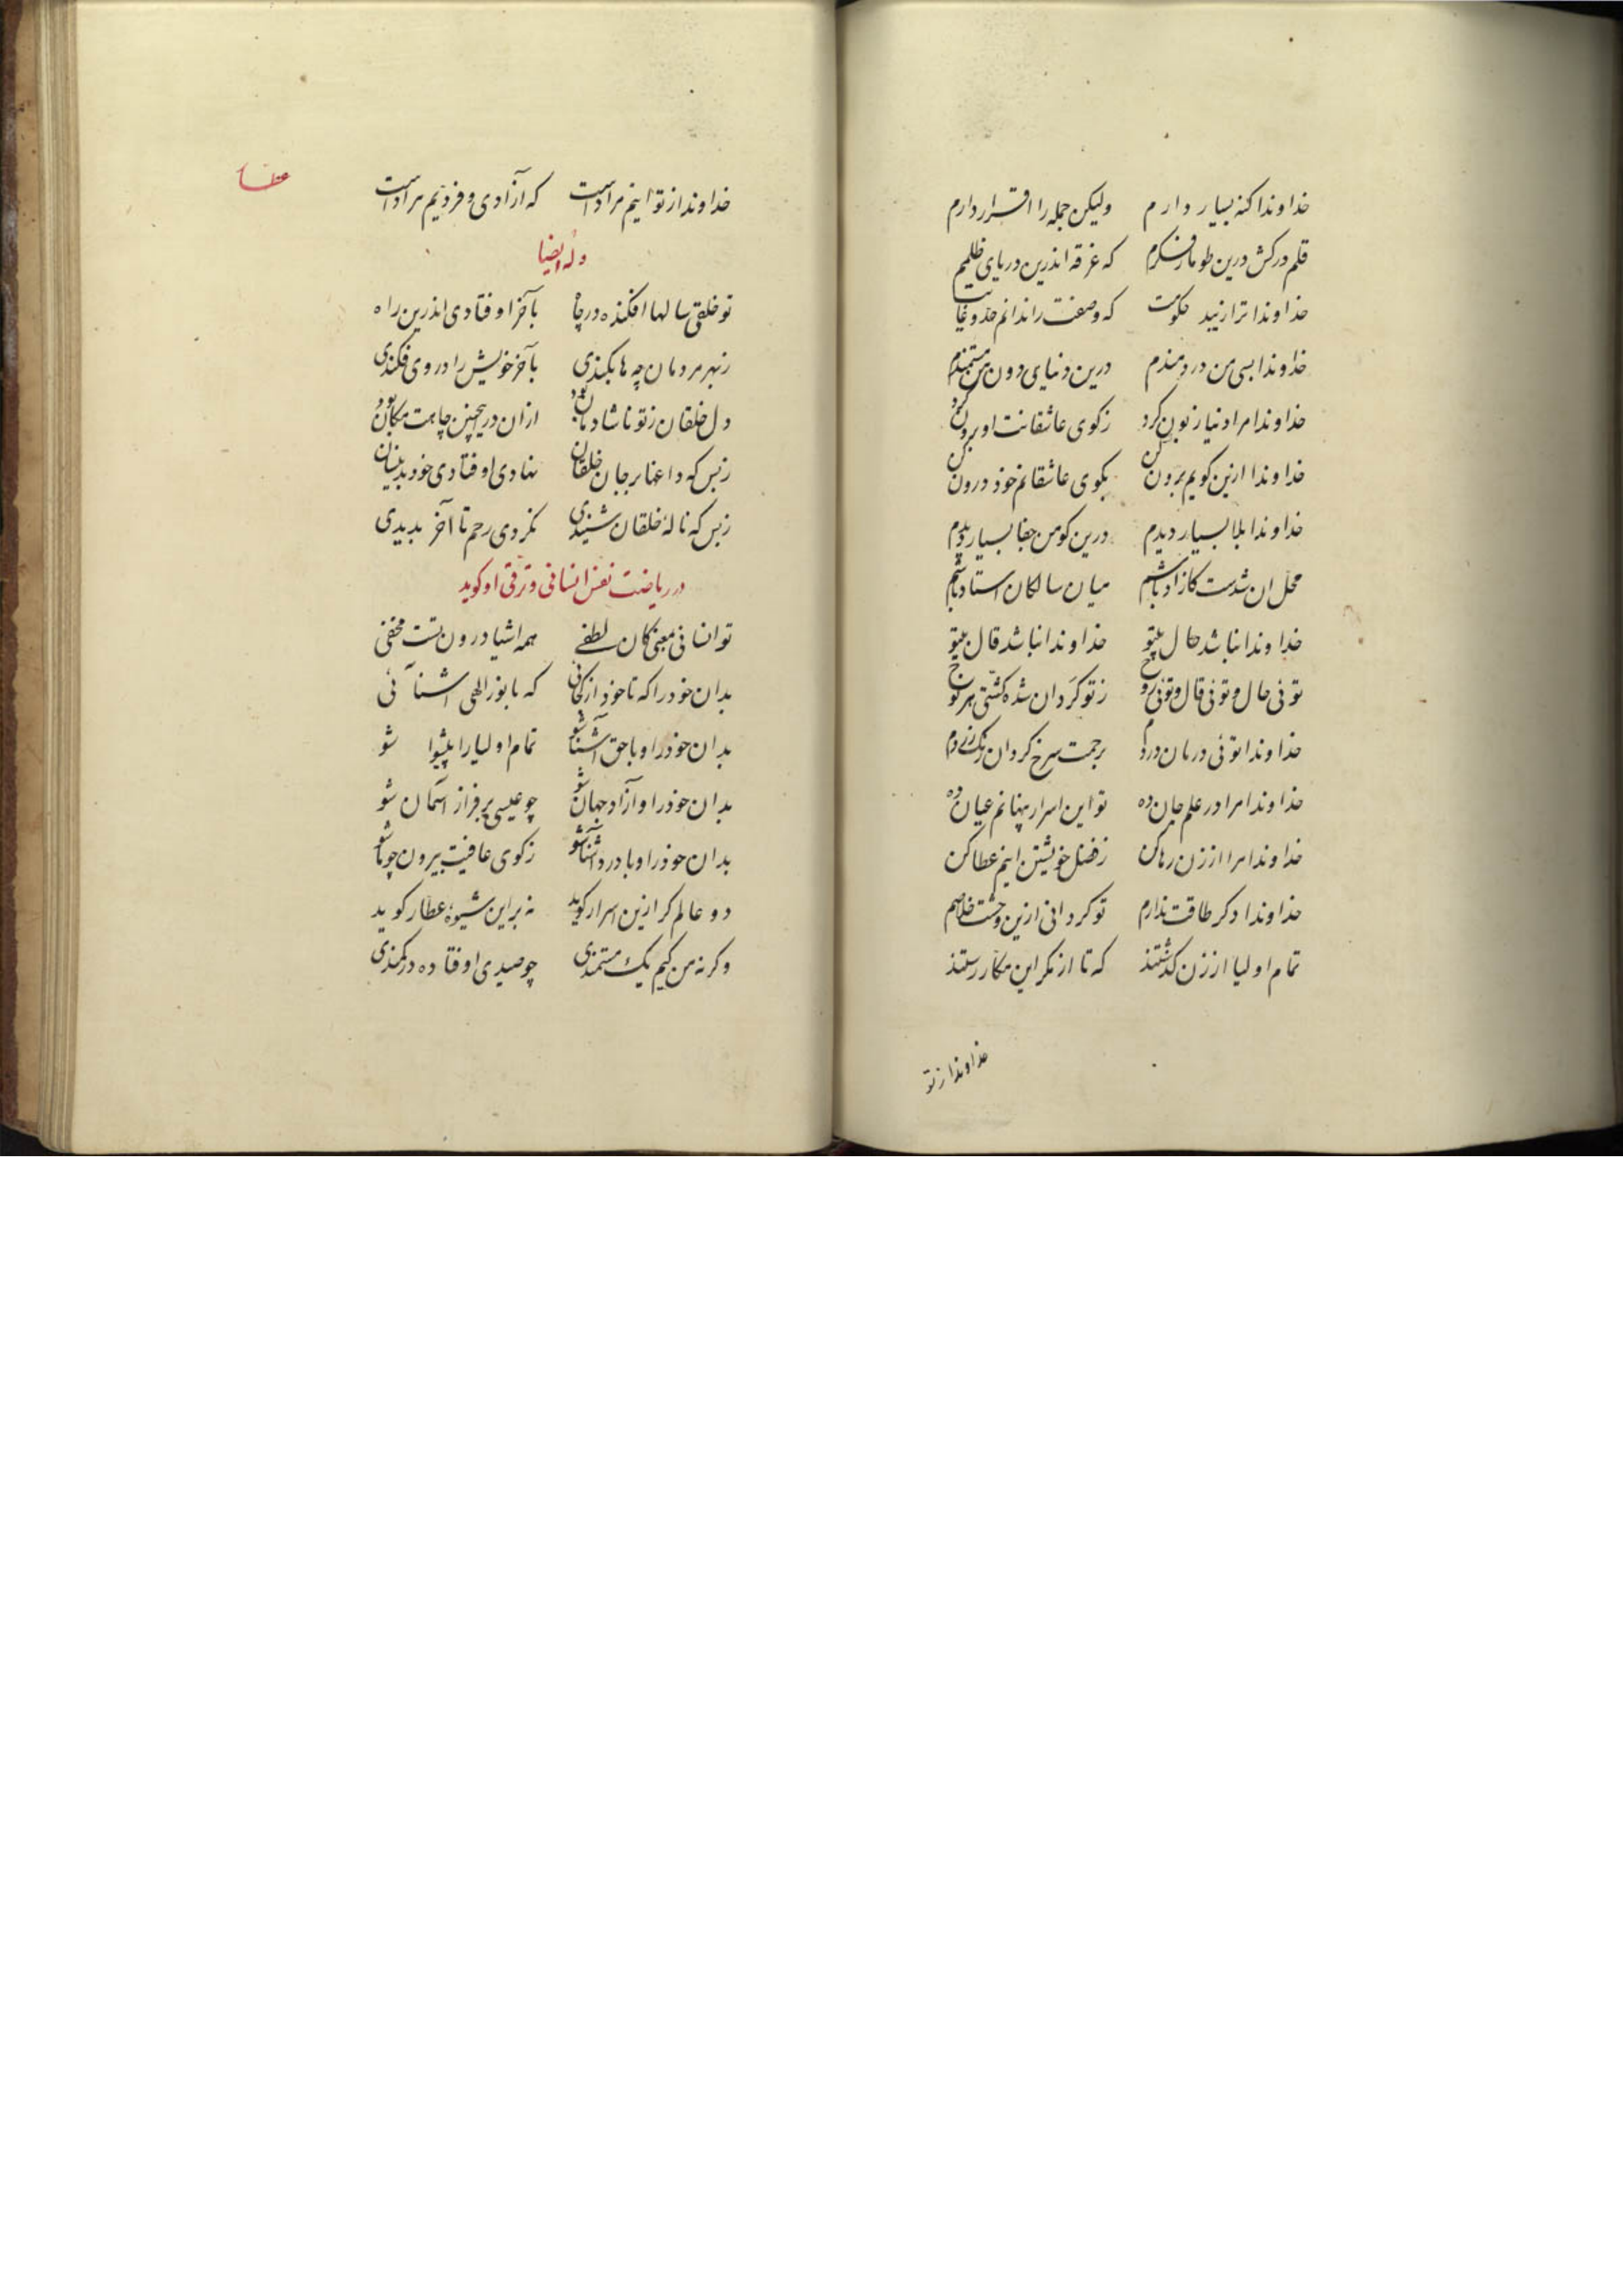 خداوندا کنه بسیار دارم ولیکن جمله را اقرار دارم
قلم درکش درین طومار که غرقه اندرین دریای ظلمم
خداوندا ترا زیبد حکومت که وصفت را ندانم حد و غایت
خداوندا بسی من دردمندم درین دنیای دون من مستمندم
خداوندا مرا دنیا زبون کرد ز کوی عاشقانت او برون کرد
خداوندا ازین کویم برون کن بکوی عاشقانم خود درون کن
خداوندا بلا بسیار دیدم درین کو من جفا بسیار دیدم
محل ان شدست کازاد باشم میان سالکان استاد باشم
خداوندا نباشد حال بیتو خداوندا نباشد قال بیتو
توئی حال و توئی قال و توئی روح ز تو کردان شده کشتی هر نوح
خداوندا توئی درمان دردم برحمت سرخ کردان رنک زردم
خداوندا مرا در علم جان ده تو این اسرار پنهانم عیان ده
خداوندا مرا از زن رها کن ز فضل خویشتن اینم عطا کن
خداوندا دکر طاقت ندارم تو کردانی ازین وحشت خلاصم
تمام اولیا از زن کذشتند که تا از مکر این مکار رستند
خداوندا ز تو
عطا
خداوندا از تو اینم مراد است که آزادی و فردیم مراد است
وله ایضا
تو خلقی سالها افکنده در چاه بآخر اوفتادی اندرین راه
ز بهر مردمان چه ها بکندی بآخر خویش را در وی فکندی
دل خلقان ز تو ناشادمان بود ازان در اینچنین چاهت مکان بود
ز بس که داغها بر جان خلقان نهادی اوفتادی خود بدینسان
ز بس که نالهٔ خلقان شنیدی نکردی رحم تا آخر بدیدی
در ریاضت نفس انسانی و ترقی او کوید
تو انسانی معنی کان لطفی همه اشیا درون تست مخفی
بدان خود را که تا خود از کجائی که با نور الهی اشنائی
بدان خود را و با حق آشنا شو تمام اولیا را پیشوا شو
بدان خود را و آزاد جهان شو چو عیسی بر فراز آسمان شو
بدان خود را و با درد آشنا شو ز کوی عافیت بیرون چو ما شو
دو عالم کر ازین اسرار کوید نه بر این شیوهٔ عطار کوید
وکرنه من کیم یک مستمندی چو صیدی اوفتاده در کمندی